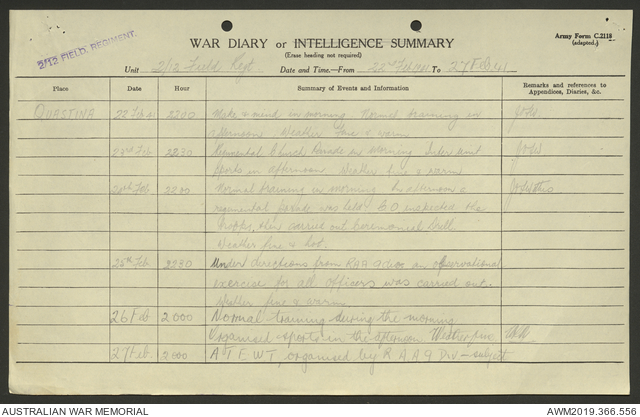 2/12 FIELD. REGIMENT.
WAR DIARY or INTELLIGENCE SUMMARY
(Erase heading not required)
Army Form C.2118
(adapted.)
Unit 2/12 Field Regt Date and Time.—From 22nd Feb 1941 To 27 Feb 41
Place Date Hour Summary of Events and Information Remarks and references to Appendices, Diaries, &c.
QUASTINA 22 Feb 41 2200 Make & mend in morning. Normal training in
afternoon. Weather fine & warm
23rd Feb 2230 Regimental Church Parade in morning. Inter unit
sports in afternoon. Weather fine & warm
24th Feb 2200 Normal training in morning. In afternoon a
regimental parade was held. CO inspected the
troops, then carried out Ceremonial Drill
Weather fine & hot.
25th Feb 2230 Under directions from RAA 9 Div an observational
exercise for all officers was carried out.
Weather fine & warm.
26 Feb 2000 Normal training during the morning
Organised sports in the afternoon. Weather fine
27 Feb. 2000 A T E W T, organised by R A A 9 Div — subject
AUSTRALIAN WAR MEMORIAL
AWM2019.366.556